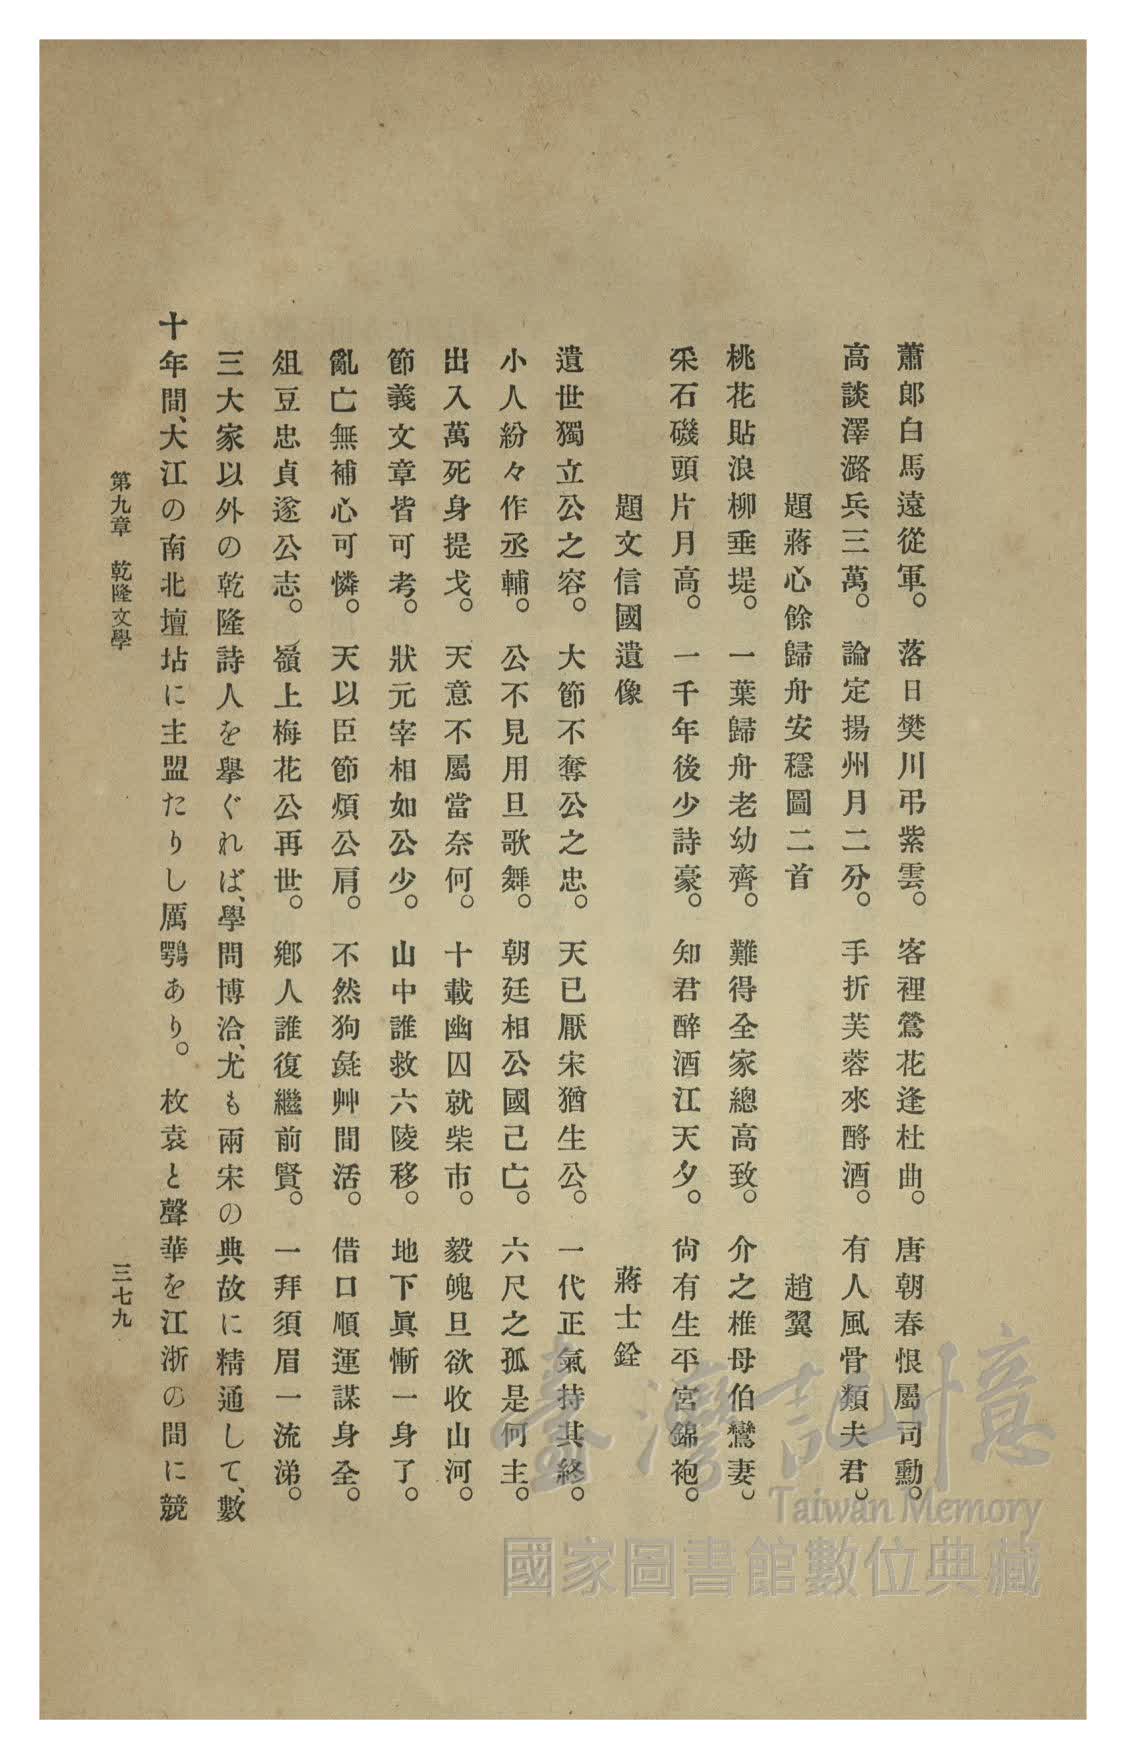 蕭郎白馬遠從軍。落日樊川弔紫雲。客裡鶯花逢杜曲。唐朝春恨屬司勳。
高談澤潞兵三萬。論定揚州月二分。手折芙蓉來酹酒。有人風骨類夫君。
題蔣心餘歸舟安穩圖二首　趙翼
桃花貼浪柳垂堤。一葉歸舟老幼齊。難得全家總高致。介之椎母伯鸞妻。
采石磯頭片月高。一千年後少詩豪。知君醉酒江天夕。尙有生平宮錦袍。
題文信國遺像　蔣士銓
遺世獨立公之容。大節不奪公之忠。天已厭宋猶生公。一代正氣持其終。
小人紛々作丞輔。公不見用且歌舞。朝廷相公國己亡。六尺之孤是何主。
出入萬死身提戈。天意不屬當奈何。十載幽囚就柴市。毅魄旦欲收山河。
節義文章皆可考。狀元宰相如公少。山中誰救六陵移。地下眞慚一身了。
亂亡無補心可憐。天以臣節煩公肩。不然狗彘艸間活。借口順運謀身全。
俎豆忠貞遂公志。嶺上梅花公再世。鄉人誰復繼前賢。一拜須眉一流涕。
三大家以外の乾隆詩人を擧ぐれば、學問博洽、尤も兩宋の典故に精通して、數
十年間、大江の南北壇坫に主盟たりし厲鶚あり。枚袁と聲華を江浙の間に競
第九章　乾隆文學　三七九
臺灣記憶
Taiwan Memory
國家圖書館數位典藏